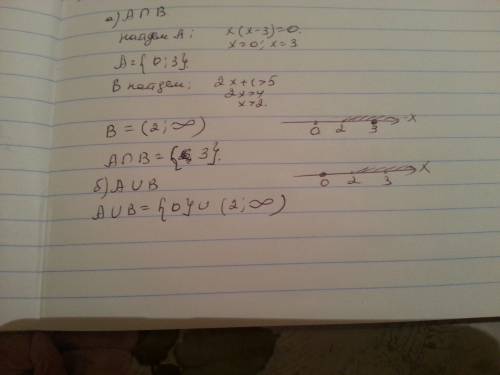 а) A ∩ B
найдем A: x(x-3)=0.
x=0; x=3
A={0;3}.
B найдем: 2x+1>5
2x>4
x>2.
B = (2; ∞)
0 2 3 x
A∩B = {3}.
0 2 3 x
б) A ∪ B
A∪B = {0}∪(2;∞)